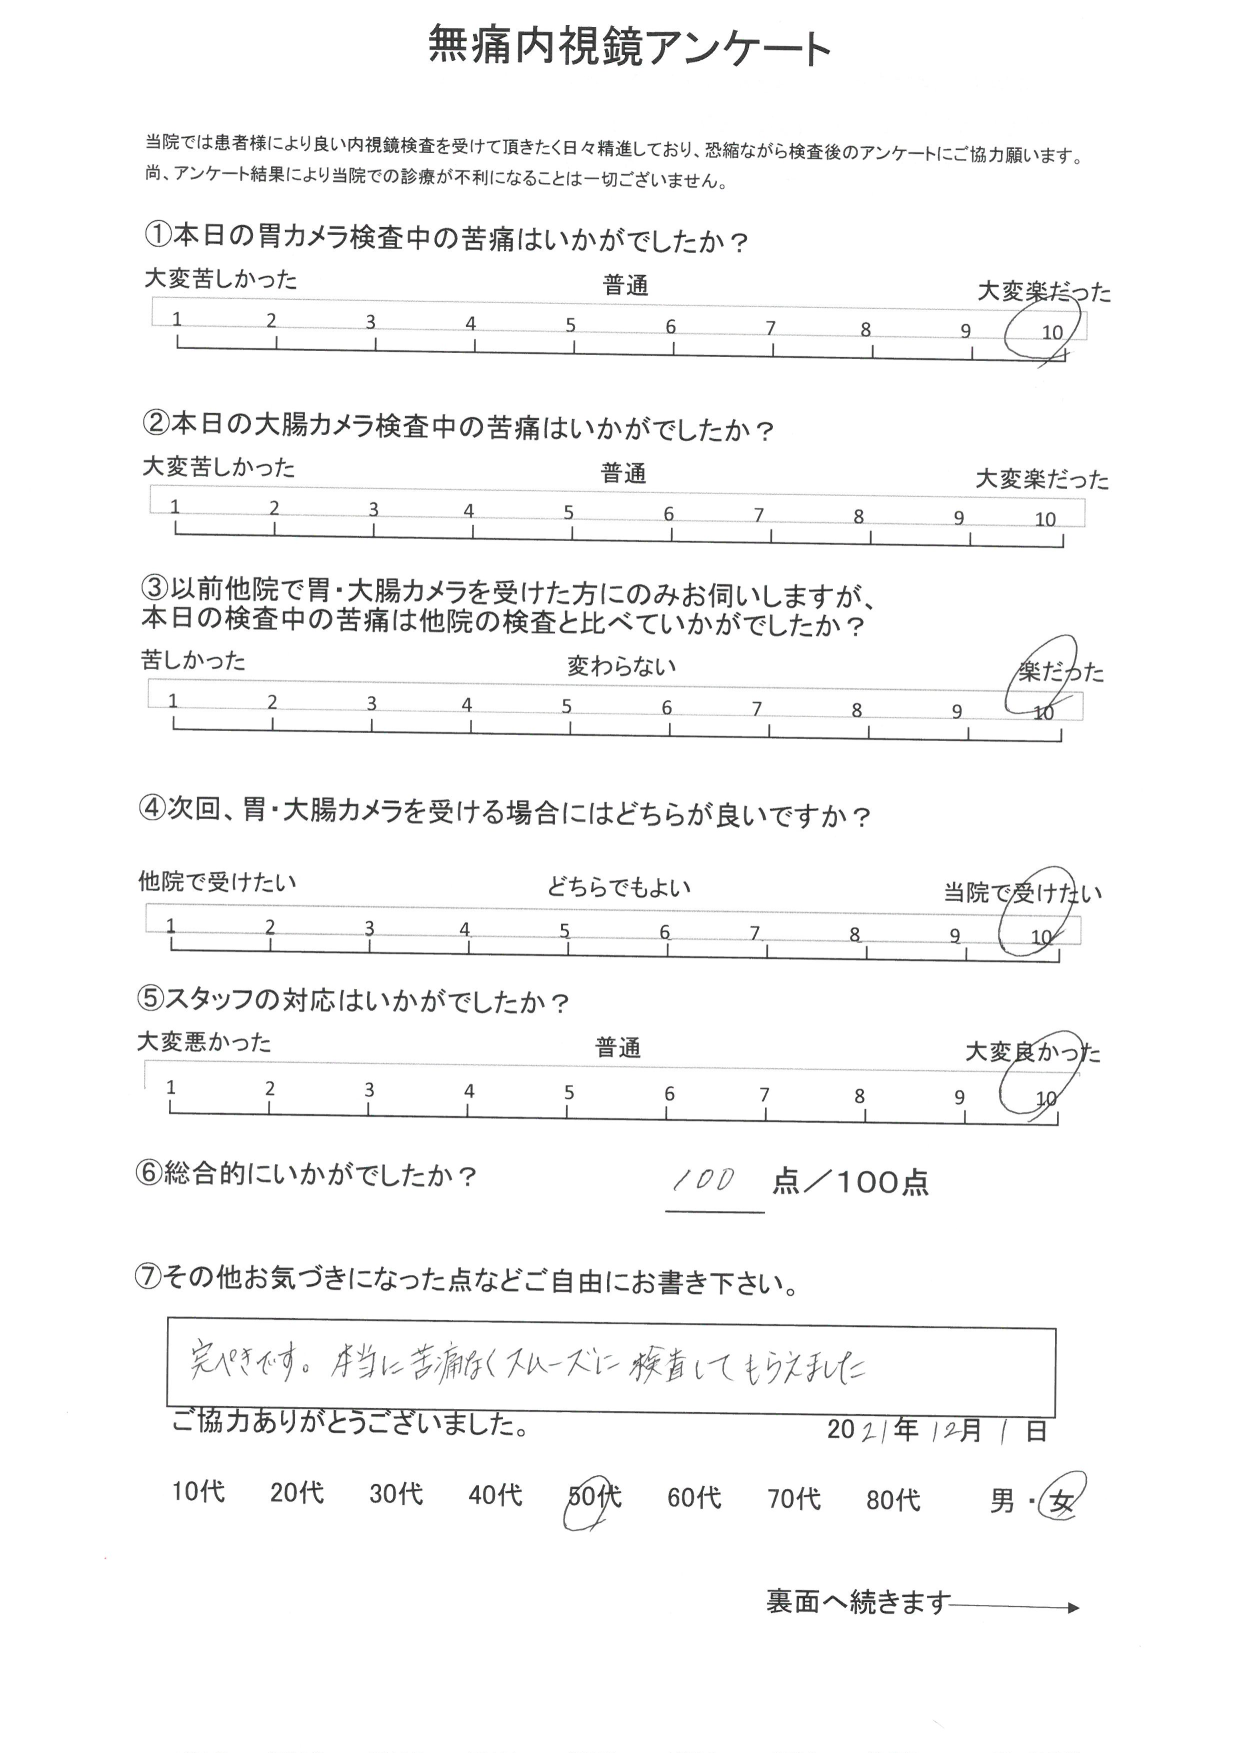 無痛内視鏡アンケート
当院では患者様により良い内視鏡検査を受けて頂きたく日々精進しており、恐縮ながら検査後のアンケートにご協力願います。
尚、アンケート結果により当院での診療が不利になることは一切ございません。
①本日の胃カメラ検査中の苦痛はいかがでしたか？
大変苦しかった 普通 大変楽だった
1 2 3 4 5 6 7 8 9 10
②本日の大腸カメラ検査中の苦痛はいかがでしたか？
大変苦しかった 普通 大変楽だった
1 2 3 4 5 6 7 8 9 10
③以前他院で胃・大腸カメラを受けた方にのみお伺いしますが、
本日の検査中の苦痛は他院の検査と比べていかがでしたか？
苦しかった 変わらない 楽だった
1 2 3 4 5 6 7 8 9 10
④次回、胃・大腸カメラを受ける場合にはどちらが良いですか？
他院で受けたい どちらでもよい 当院で受けたい
1 2 3 4 5 6 7 8 9 10
⑤スタッフの対応はいかがでしたか？
大変悪かった 普通 大変良かった
1 2 3 4 5 6 7 8 9 10
⑥総合的にいかがでしたか？ 100 点／100点
⑦その他お気づきになった点などご自由にお書き下さい。
完ぺきです。本当に苦痛なくスムーズに検査してもらえました
ご協力ありがとうございました。 2021年12月1日
10代 20代 30代 40代 50代 60代 70代 80代 男・女
裏面へ続きます